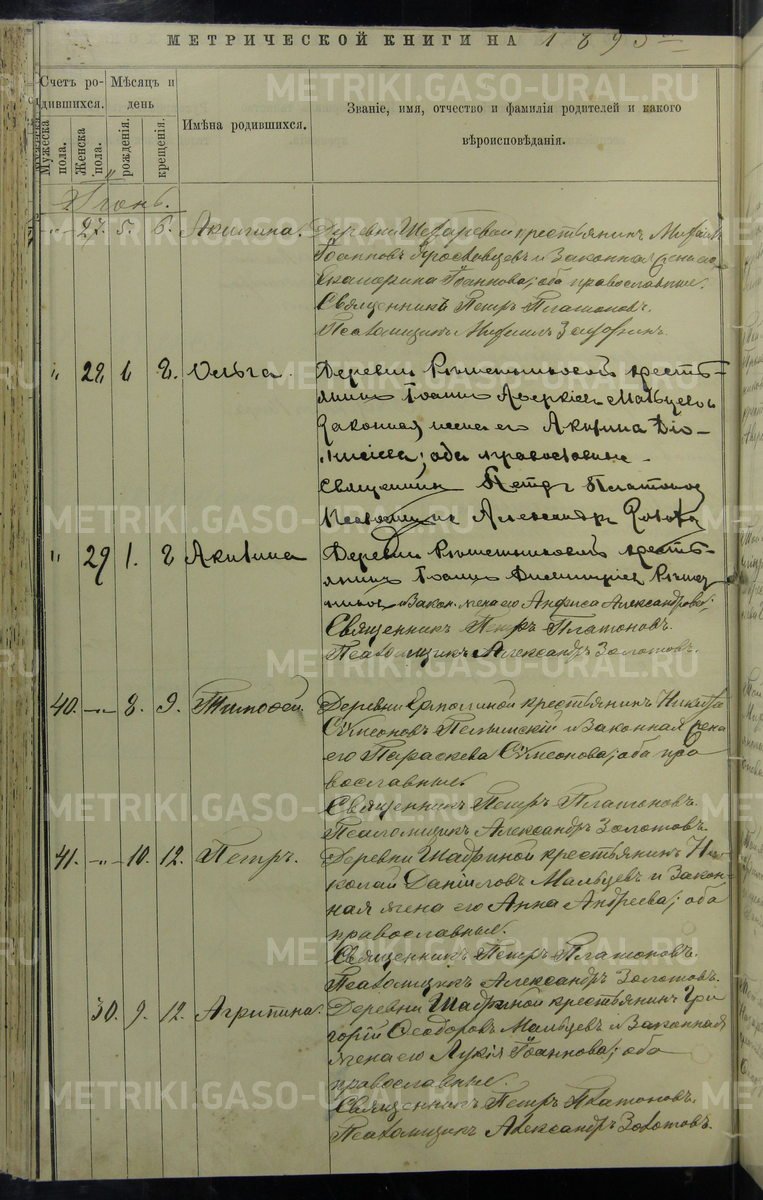 МЕТРИЧЕСКОЙ КНИГИ НА 1895
Счетъ ро-
дившихся.
Мѣсяцъ и
день
Имѣна родившихся.
Званіе, имя, отчество и фамилія родителей и какого
вѣроисповѣданія.
Мужеска
пола.
Женска
пола.
рожденія.
крещенія.
Іюнь.
27. 5. 6. Акилина. Деревни крестьянинъ Михаилъ
Іоанновъ и Законная жена его
Екатерина Іоаннова; оба православные.
Священникъ Петръ Платоновъ.
Псаломщикъ Михаилъ
28 6 8. Ольга. Деревни Рѣшетниковой кресть-
янинъ Іоаннъ Мальцевъ
Законная жена его Акилина Діо-
нисіева; оба православные.
Священникъ Петръ Платоновъ
Псаломщикъ Александръ Золотовъ
" 29 1. 8 Акилина Деревни Рѣшетниковой кресть-
янинъ Іоаннъ Димитріевъ Рѣшет
никовъ и Закон. жена его Анфиса Александрова;
Священникъ Петръ Платоновъ.
Псаломщикъ Александръ Золотовъ.
40. —"— 8. 9. Тимофей. Деревни Ермолиной крестьянинъ Никита
Сѵмеоновъ Пелымскій и Законная жена
его Параскева Сѵмеонова; оба пра
вославные.
Священникъ Петръ Платоновъ.
Псаломщикъ Александръ Золотовъ.
41. —"— 10. 12. Петръ. Деревни Шадриной крестьянинъ Ни-
колай Даніиловъ Мальцевъ и Закон-
ная жена его Анна Андреева; оба
православные.
Священникъ Петръ Платоновъ.
Псаломщикъ Александръ Золотовъ.
30. 9. 12. Агрипина. Деревни Шадриной крестьянинъ Гри
горій Ѳеодоровъ Мальцевъ и Законная
жена его Лукія Іоаннова; оба
православные.
Священникъ Петръ Платоновъ.
Псаломщикъ Александръ Золотовъ.
METRIKI.GASO-URAL.RU